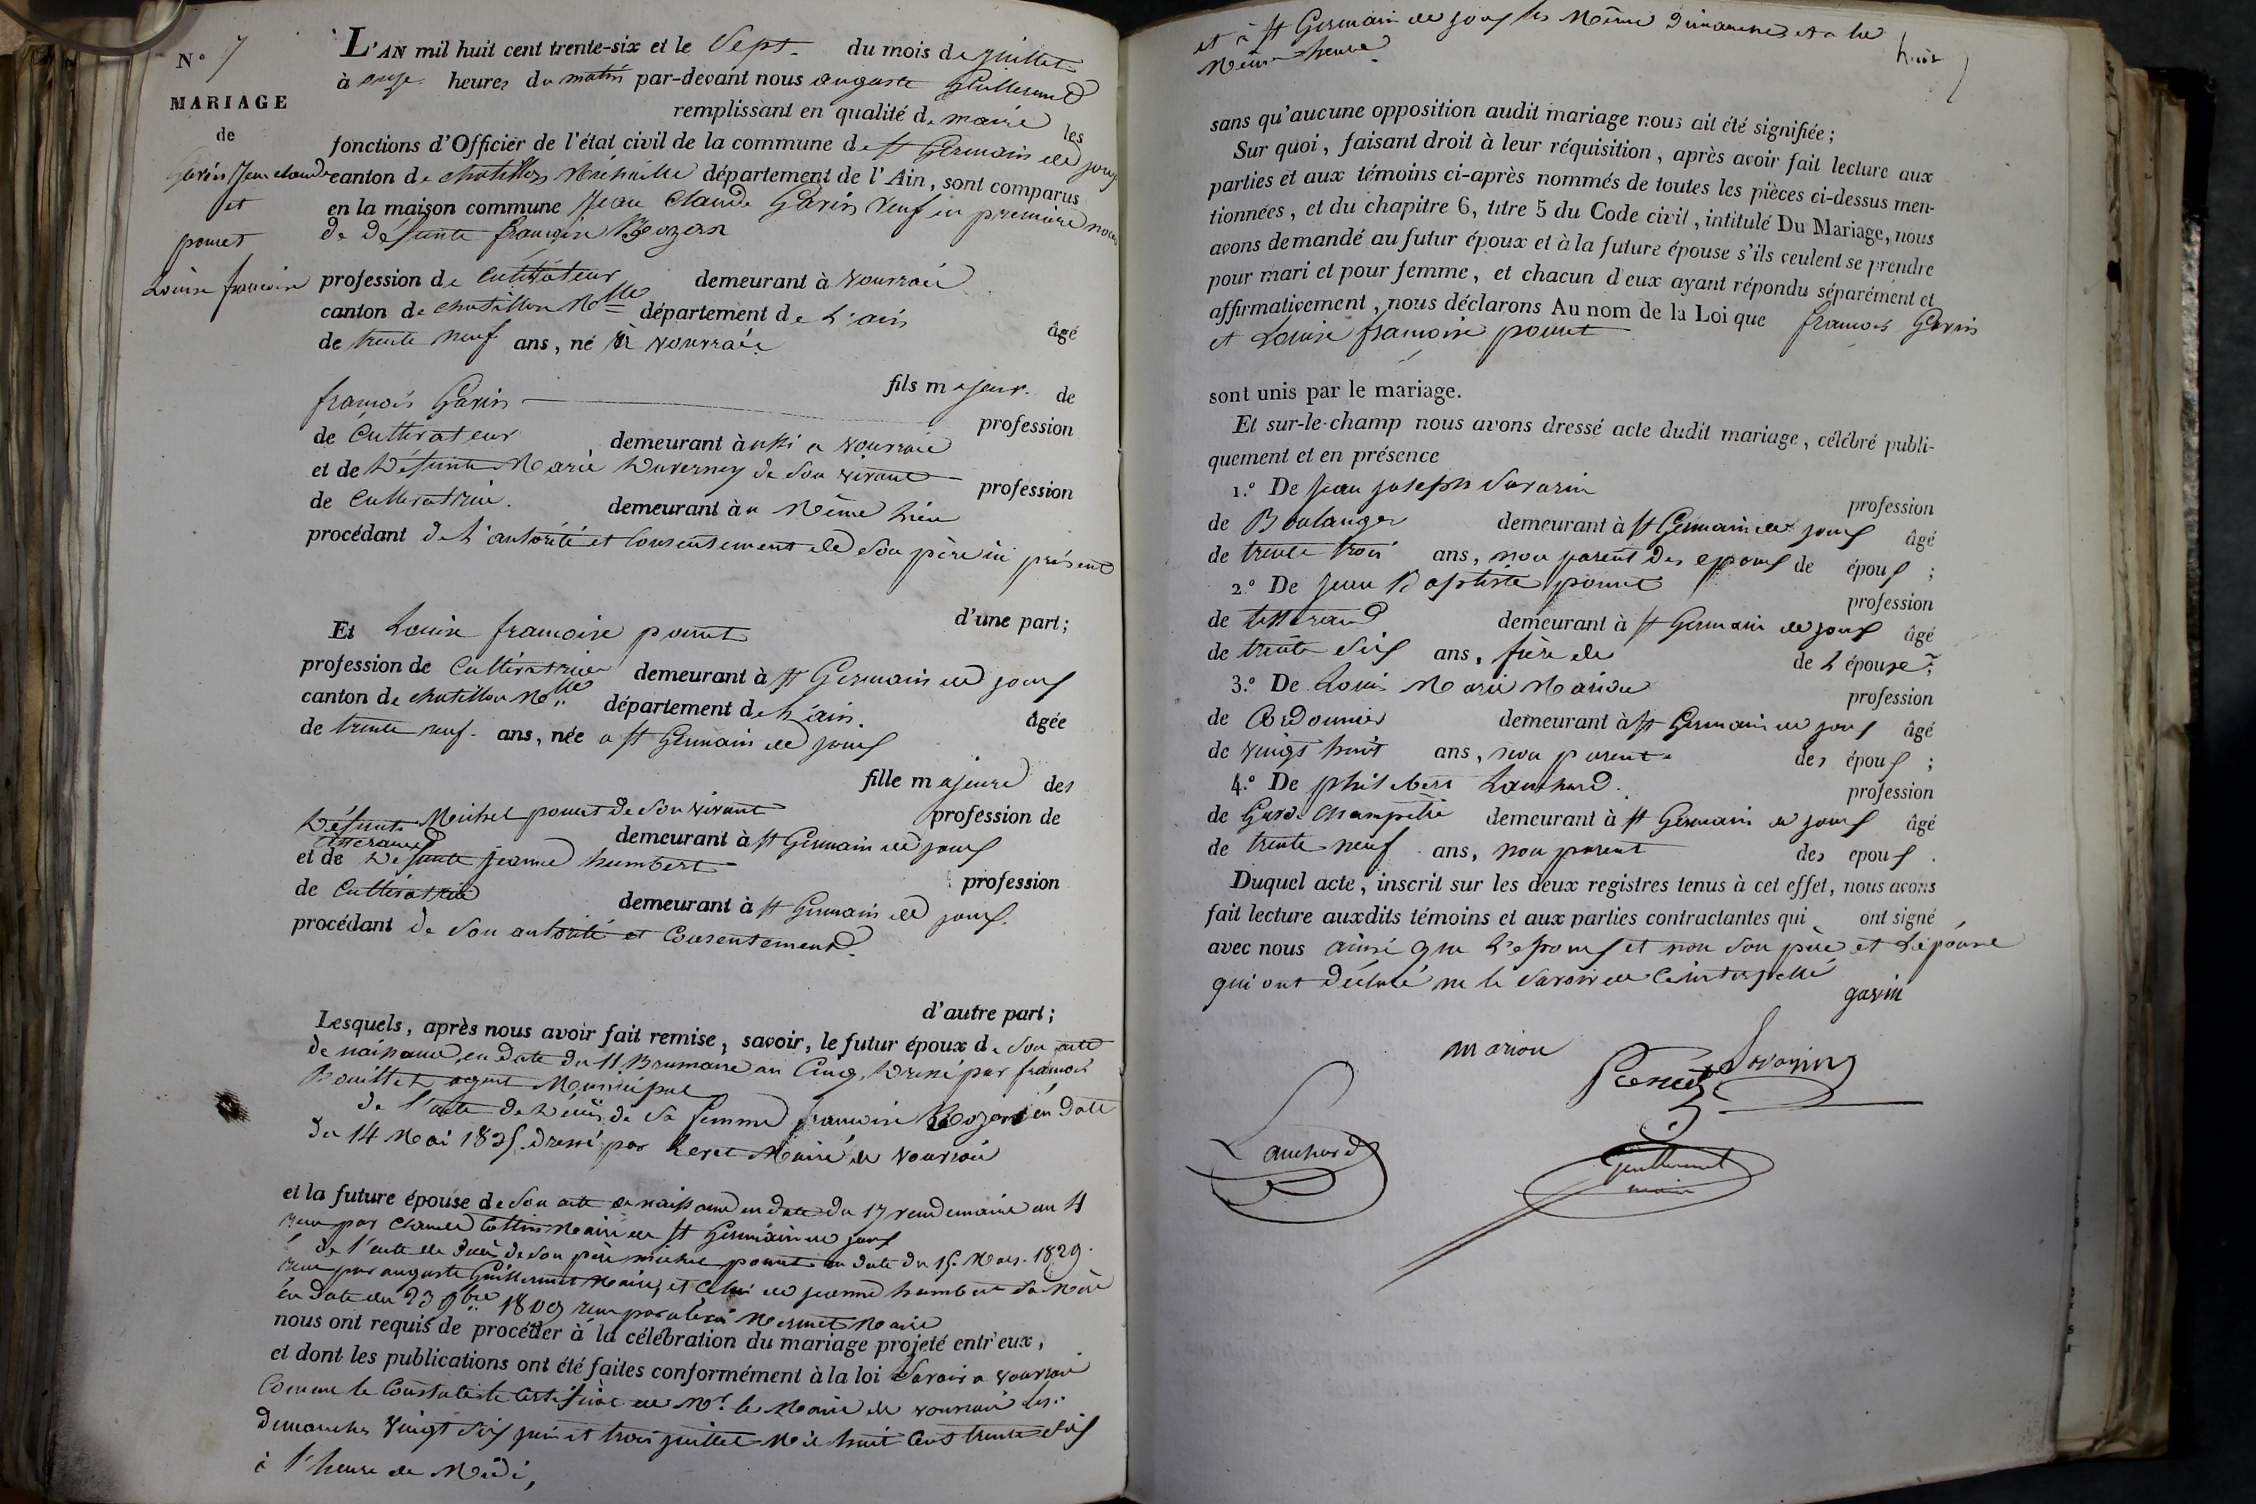 N.° 7
MARIAGE
de
Garin Jean claude
et
poncet
Louise francoise
L'AN mil huit cent trente-six et le Sept. du mois de juillet
à onze heures du matin par-devant nous auguste Guillermet
remplissant en qualité de maire les
fonctions d'Officier de l'état civil de la commune de st Germain de joux
canton de chatillon Michaille département de l'Ain, sont comparus
en la maison commune Jean Claude Garin veuf en premiere noce
de défunte françoise
profession de cultivateur demeurant à vouvraie
canton de chatillon Mlle département de L'ain âgé
de trente neuf ans, né à vouvraie
fils majeur de
françois Garin profession
de Cultivateur demeurant à vouvraie
et de Défunte Marie Duverney de son vivant profession
de Cultivatrice. demeurant au Même Lieu
procédant de L'autorité et Consentement de son père ici présent
d'une part;
Et Louise francoise poncet
profession de Cultivatrice demeurant à st Germain de joux
canton de chatillon Mlle département de L'ain. âgée
de trente neuf ans, née a st Germain de joux
fille majeure des
Défunts Michel poncet de son vivant profession de
tisserand demeurant à st Germain de joux
et de Défunte jeanne humbert profession
de Cultivatrice demeurant à st Germain de joux.
procédant de son autorité et Consentement.
d'autre part;
Lesquels, après nous avoir fait remise, savoir, le futur époux de son acte
de naissance, en date du 11 Brumaire an Cinq, Dressé par francois
Bouillet agent Municipal
de l'acte de Décès de sa femme francoise en date
du 14 Mai 1835. dressé par Maire de vouvraie
et la future épouse de son acte de naissance en date du 17 vendemaire an
recu par Claude Collin Maire de st Germain de joux
de l'acte de décès de son père michel poncet en date du 15. Mars. 1829.
recu par auguste Guillermet Maire, et celui de jeanne humbert sa Mere
en date du 23 9bre 1809 recu par Mermet Maire
nous ont requis de procéder à la célébration du mariage projeté entr'eux,
et dont les publications ont été faites conformément à la loi Savoir a vouvraie
Comme le Constate le Certificat de Mr. le Maire de vouvraie les
dimanches vingt six juin et trois juillet Mil huit Cent trente six
à l'heure de Midi,
et à st Germain de joux les Même Dimanches et a la
Même heure.
huit
sans qu'aucune opposition audit mariage nous ait été signifiée;
Sur quoi, faisant droit à leur réquisition, après avoir fait lecture aux
parties et aux témoins ci-après nommés de toutes les pièces ci-dessus men-
tionnées, et du chapitre 6, titre 5 du Code civil, intitulé Du Mariage, nous
avons demandé au futur époux et à la future épouse s'ils veulent se prendre
pour mari et pour femme, et chacun d'eux ayant répondu séparément et
affirmativement, nous déclarons Au nom de la Loi que francois Garin
et Louise francoise poncet
sont unis par le mariage.
Et sur-le-champ nous avons dressé acte dudit mariage, célébré publi-
quement et en présence
1.° De jean joseph Savarin profession
de Boulanger demeurant à st Germain de joux âgé
de trente trois ans, non parent des epoux de époux;
2.° De jean Baptiste poncet profession
de tisserand demeurant à st Germain de joux âgé
de trente six ans, frère de de L'épouse;
3.° De Louis Marie Marion profession
de Cordonnier demeurant à st Germain de joux âgé
de vingt huit ans, non parent des époux;
4.° De philibert Lanchard. profession
de Garde Champêtre demeurant à st Germain de joux âgé
de trente neuf ans, non parent des epoux.
Duquel acte, inscrit sur les deux registres tenus à cet effet, nous avons
fait lecture auxdits témoins et aux parties contractantes qui ont signé
avec nous ainsi que L'epoux et non son père et L'épouse
qui ont Déclaré ne le Savoir de Ce interpellé
garin
marion
Savarin
Poncet
Lanchard
Guillermet
maire